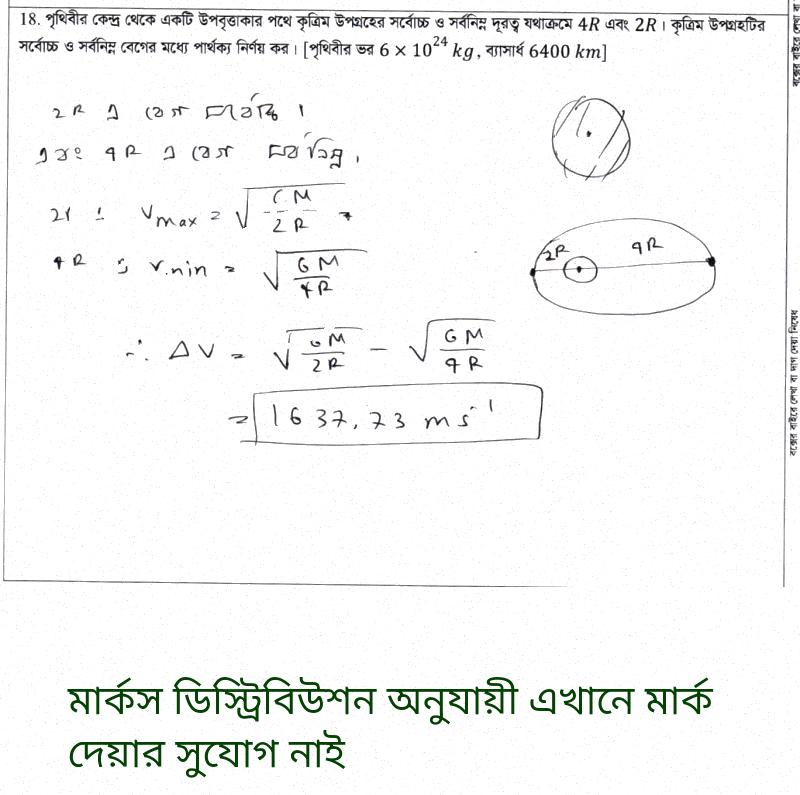 18. পৃথিবীর কেন্দ্র থেকে একটি উপবৃত্তাকার পথে কৃত্রিম উপগ্রহের সর্বোচ্চ ও সর্বনিম্ন দূরত্ব যথাক্রমে 4R এবং 2R। কৃত্রিম উপগ্রহটির
সর্বোচ্চ ও সর্বনিম্ন বেগের মধ্যে পার্থক্য নির্ণয় কর। [পৃথিবীর ভর 6 × 10²⁴ kg, ব্যাসার্ধ 6400 km]
2R এ বেগ সর্বোচ্চ।
এবং 4R এ বেগ সর্বনিম্ন।
V max = √(GM/2R)
4R ; V min = √(GM/4R)
2R 4R
∴ ΔV = √(GM/2R) − √(GM/4R)
= 1637.73 ms⁻¹
বক্সের বাইরে লেখা বা দাগ দেয়া নিষেধ
মার্কস ডিস্ট্রিবিউশন অনুযায়ী এখানে মার্ক
দেয়ার সুযোগ নাই